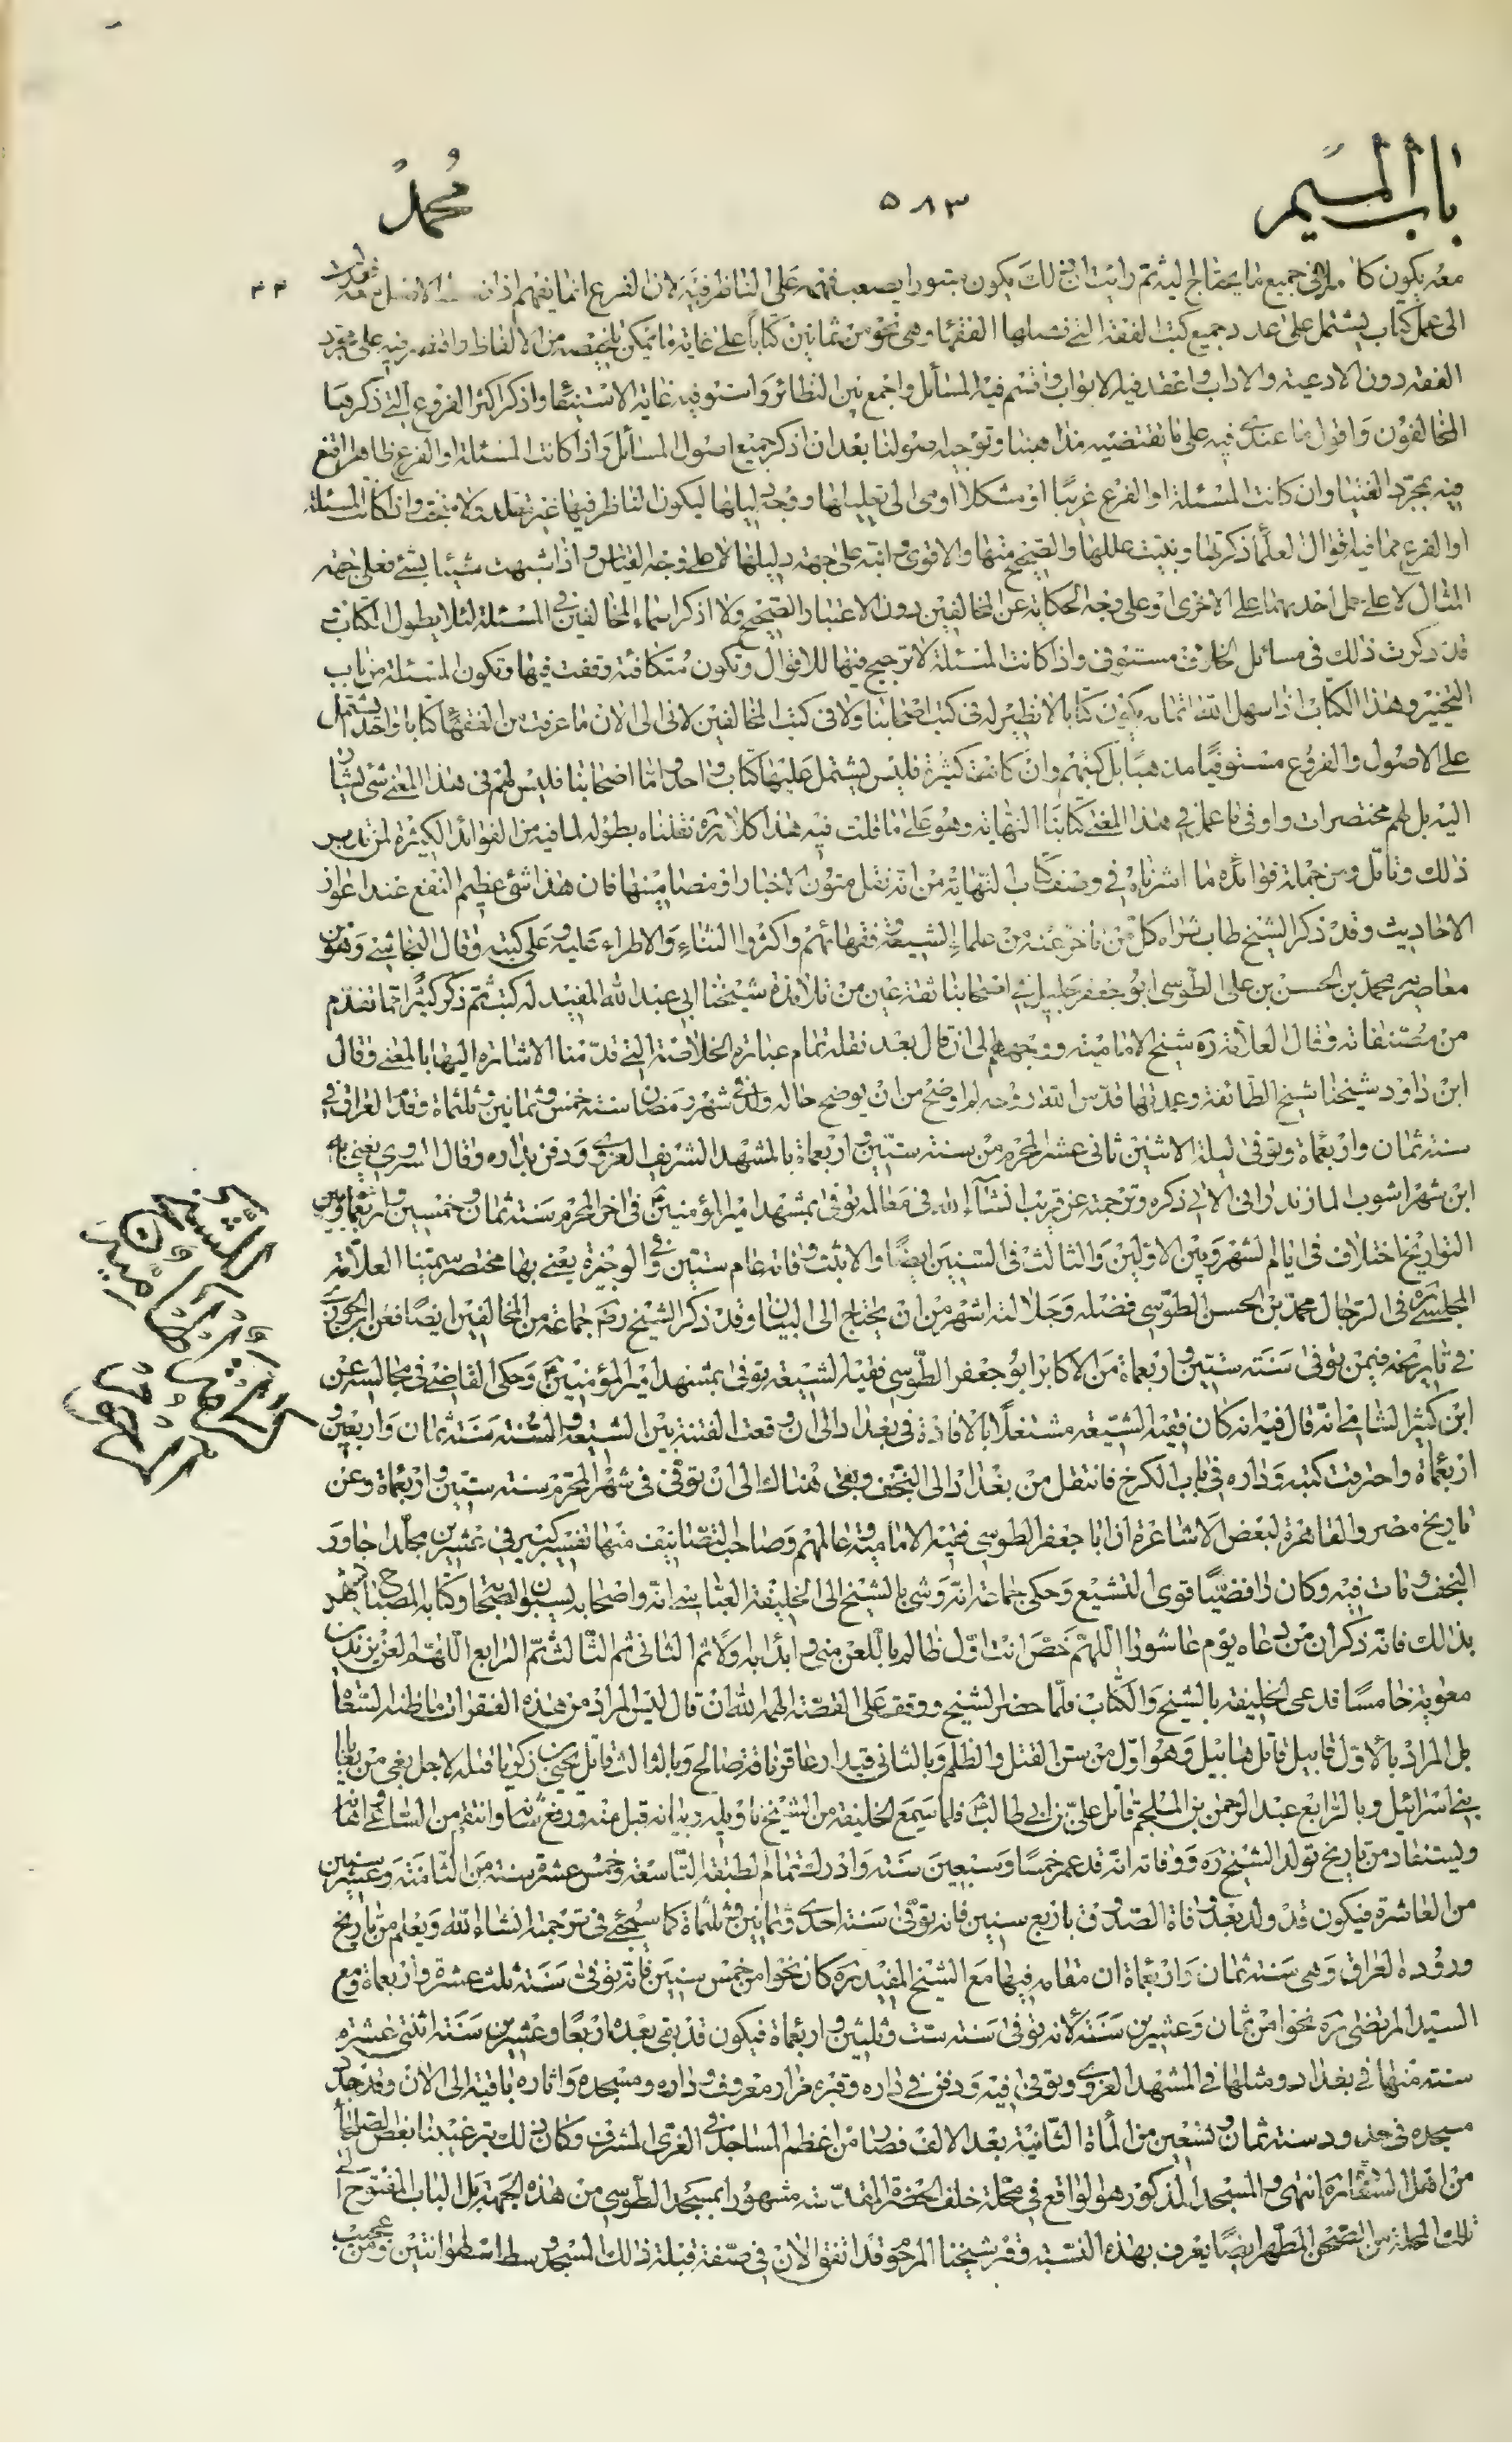 باب الميم
٥٨٣
محمد
معه يكون كاملا في جميع ما يحتاج اليه ثم رايت ان ذلك يكون مبتورا يصعب فهمه على الناظر فيه لان الفرع انما يفهم اذا
الى عمل كتاب يشتمل على عدد جميع كتب الفقه التي فصلها الفقهاء وهي نحو من ثمانين كتابا على غاية ما يمكن تلخيصه من الالفاظ واقتصر فيه على مجرد
الفقه دون الادعية والاداب واعقد فيه الابواب واقسم فيه المسائل واجمع بين النظائر واستوفيه غاية الاستيفاء واذكر اكثر الفروع التي ذكرها
المخالفون واقول ما عندي فيه على ما تقتضيه مذاهبنا وتوجبه اصولنا بعد ان اذكر جميع اصول المسائل واذا كانت المسئلة او الفرع ظاهرا اقنع
فيه بمجرد الفتيا وان كانت المسئلة او الفرع غريبا او مشكلا اومى الى تعليلها ووجه دليلها ليكون الناظر فيها غير مقلد ولا مبخت وان كانت المسئلة
او الفرع مما فيه اقوال العلماء ذكرتها وبينت عللها والصحيح منها والاقوى وانبه على جهة دليلها لا على وجه القياس واذا شبهت شيئا بشئ فعلى جهة
المثال لا على حمل احديهما على الاخرى او على وجه الحكاية عن المخالفين دون الاعتبار الصحيح ولا اذكر اسماء المخالفين في المسئلة لئلا يطول الكتاب و
قد ذكرت ذلك في مسائل الخلاف مستوفى واذا كانت المسئلة لا ترجيح فيها للاقوال وتكون متكافئة وقفت فيها وتكون المسئلة من باب
التخيير وهذا الكتاب اذا سهل الله اتمامه يكون كتابا لا نظير له في كتب اصحابنا ولا في كتب المخالفين لاني الى الان ما عرفت من الفقهاء كتابا واحدا يشتمل
على الاصول والفروع مستوفيا مذهبنا بل كتبهم وان كانت كثيرة فليس يشتمل عليها كتاب واحد واما اصحابنا فليس لهم في هذا المعنى شئ يشار
اليه بل لهم مختصرات واوفى ما عمل في هذا المعنى كتابنا النهاية وهو على ما قلت فيه هذا كلامه ره نقلناه بطوله لما فيه من الفوائد الكثيرة لمن تدبر
ذلك وتامل ومن جملة فوائده ما اشرناه في وصف كتاب النهاية من انه نقل متون الاخبار او مضامينها فان هذا شئ عظيم النفع عند اعواز
الاحاديث وقد ذكر الشيخ طاب ثراه كل من تاخر عنه من علماء الشيعة وفقهائهم واكثروا الثناء والاطراء عليه وعلى كتبه وقال النجاشي وهو من
معاصريه محمد بن الحسن بن علي الطوسي ابو جعفر جليل في اصحابنا ثقة عين من تلامذة شيخنا ابي عبد الله المفيد له كتب ثم ذكر كثيرا مما تقدم
من مصنفاته وقال العلامة ره شيخ الامامية ووجههم الى ان قال بعد نقله تمام عبارة الخلاصة التي قدمنا الاشارة اليها بالمعنى وقال
ابن داود شيخنا شيخ الطائفة وعمدتها قدس الله روحه اوضح من ان يوضح حاله ولد في شهر رمضان سنة خمس وثمانين وثلثمائة وقدم العراق في
سنة ثمان واربعمائة وتوفى ليلة الاثنين ثاني عشر المحرم من سنة ستين واربعماة بالمشهد الشريف الغروي ودفن بداره وقال السروي يعني به
ابن شهراشوب المازندراني الاتي ذكره وترجمته عن قريب انشاء الله في معالمه توفى بمشهد امير المؤمنين ع في اخر المحرم سنة ثمان وخمسين واربعمائة وبين
التواريخ اختلاف في ايام الشهر وبين الاولين والثالث في السنين ايضا والاثبت وفاته عام ستين وفي الوجيزة يعني بها مختصر سمينا العلامة
المجلسي ره في الرجال محمد بن الحسن الطوسي فضله وجلالته اشهر من ان يحتاج الى البيان وقد ذكر الشيخ ره جماعة من المخالفين ايضا فعن ابن الجوزي
في تاريخه فيمن توفى سنة ستين واربعماة من الاكابر ابو جعفر الطوسي فقيه الشيعة توفى بمشهد امير المؤمنين ع وحكى القاضي في مجالسه عن
ابن كثير الشامي انه قال فيه انه كان فقيه الشيعة مشتغلا بالافادة في بغداد الى ان وقعت الفتنة بين الشيعة والسنة سنة ثمان واربعين و
اربعماة واحترقت كتبه وداره في باب الكرخ فانتقل من بغداد الى النجف وبقى هناك الى ان توفى في شهر المحرم سنة ستين واربعماة وعن
تاريخ مصر والقاهرة لبعض الاشاعرة ان ابا جعفر الطوسي فقيه الامامية وعالمهم وصاحب التصانيف منها تفسير كبير في عشرين مجلدا جاور
النجف ومات فيه وكان رافضيا قوى التشيع وحكى جماعة انه وشى بالشيخ الى الخليفة العباسي انه واصحابه يسبون الصحابة وكتابه المصباح يشهد
بذلك فانه ذكر ان من دعاء يوم عاشورا اللهم خص انت اول ظالم باللعن مني وابدا به اولا ثم الثاني ثم الثالث ثم الرابع اللهم العن يزيد بن
معوية خامسا فدعى الخليفة بالشيخ والكتاب فلما حضر الشيخ ووقف على القصة الهمه الله ان قال ليس المراد من هذه الفقرات ما ظنه السعاة
بل المراد بالاول قابيل قاتل هابيل وهو اول من سن القتل والظلم وبالثاني قيدار عاقر ناقة صالح وبالثالث قاتل يحيى بن زكريا قتله لاجل بغي من بغايا
بني اسرائيل وبالرابع عبد الرحمن بن الملجم قاتل علي بن ابي طالب ع فلما سمع الخليفة من الشيخ تاويله وبيانه قبل منه ورفع شانه وانتقم من الساعي واهانه
ويستفاد من تاريخ تولد الشيخ ره ووفاته انه قد عمر خمسا وسبعين سنة وادرك تمام الطبقة التاسعة وخمس عشرة سنة من الثامنة وعشر سنين
من العاشرة فيكون قد ولد بعد وفاة الصدوق باربع سنين فانه توفى سنة احدى وثمانين وثلثماة كما سيجئ في ترجمته انشاء الله ويعلم من تاريخ
وروده العراق وهي سنة ثمان واربعماة ان مقامه فيها مع الشيخ المفيد ره كان نحوا من خمس سنين فانه توفى سنة ثلث عشرة واربعماة ومع
السيد المرتضى ره نحوا من ثمان وعشرين سنة لانه توفى سنة ست وثلثين واربعماة فيكون قد بقى بعده اربعا وعشرين سنة اثنتى عشرة
سنة منها في بغداد ومثلها في المشهد الغروي وتوفى فيه ودفن في داره وقبره مزار معروف وداره ومسجده واثاره باقية الى الان وقد جدد
مسجده في حدود سنة ثمان وتسعين من المأة الثانية بعد الالف فصار من اعظم المساجد في الغري المشرف وكان ذلك بترغيبنا بعض الصلحاء
من اهل السعادة انتهى والمسجد المذكور هو الواقع في محلة خلف الحضرة المقدسة مشهورا بمسجد الطوسي من هذه الجهة بل الباب المفتوح الى
تلك المحلة من الصحن المطهر ايضا يعرف بهذه النسبة وقبر شيخنا المرحوم قد اتفق الان في صفة قبلة ذلك المسجد وسط اسطوانتين ومن عجيب